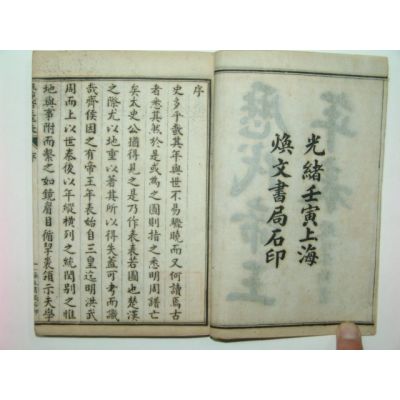 光緒壬寅上海
煥文書局石印
序
史多乎哉其年與世不易礙曉而又何讀焉古
者悉其然於是或為之圖則措之悉明周譜亡
矣太史公猶得見之是乃作表表若圖也楚漢
之際尤以地重以著其所以得失蓋可考而識
哉齊侯因之有帝王年表始自三皇迄明洪武
周而上以世秦後以年縱橫列之統閏別之雅
地與事附而繫之如鏡眉目脩挈裘領示天學